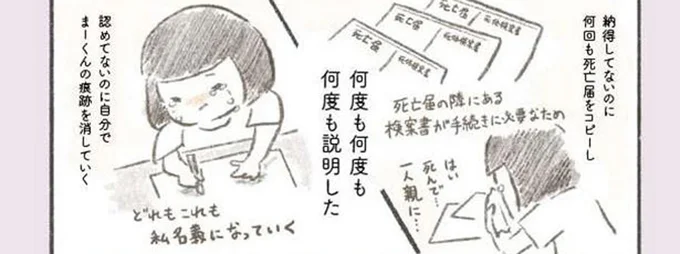 納得してないのに
何回も死亡届をコピーし
死亡届
死亡届
死亡届
死亡届
死体検案書
死体検案書
死亡届の隣にある
検案書が手続きに必要なため
はい
死んで…
一人親に…
何度も何度も
何度も説明した
認めてないのに自分で
まーくんの痕跡を消していく
どれもこれも
私名義になっていく